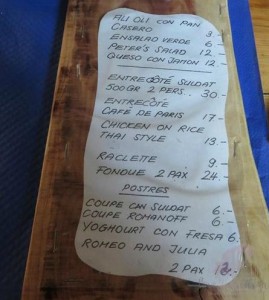 ALI OLI CON PAN
CASERO 3.-
ENSALAD VERDE 6.-
PETER'S SALAD 12.-
QUESO CON JAMON 12.-
ENTRECÔTE SULDAT
500GR 2 PERS.. 30.-
ENTRECÔTE
CAFÉ DE PARIS 17.-
CHICKEN ON RICE
THAI STYLE 13.-
RACLETTE 9.-
FONDUE 2 PAX 24.-
POSTRES
COUPE CAN SULDAT 6.-
COUPE ROMANOFF 6.-
YOGHOURT CON FRESA 6.
ROMEO AND JULIA
2 PAX